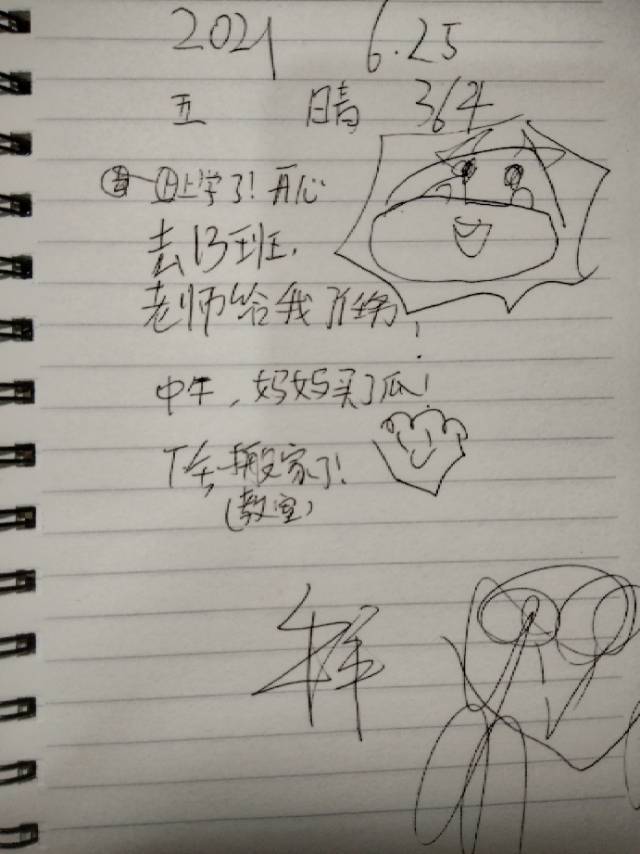 2021 6.25
五 晴 364
上学了！开心
去13班.
老师给我了任务！
中午，妈妈买了瓜！
下午搬家了！
(教室)